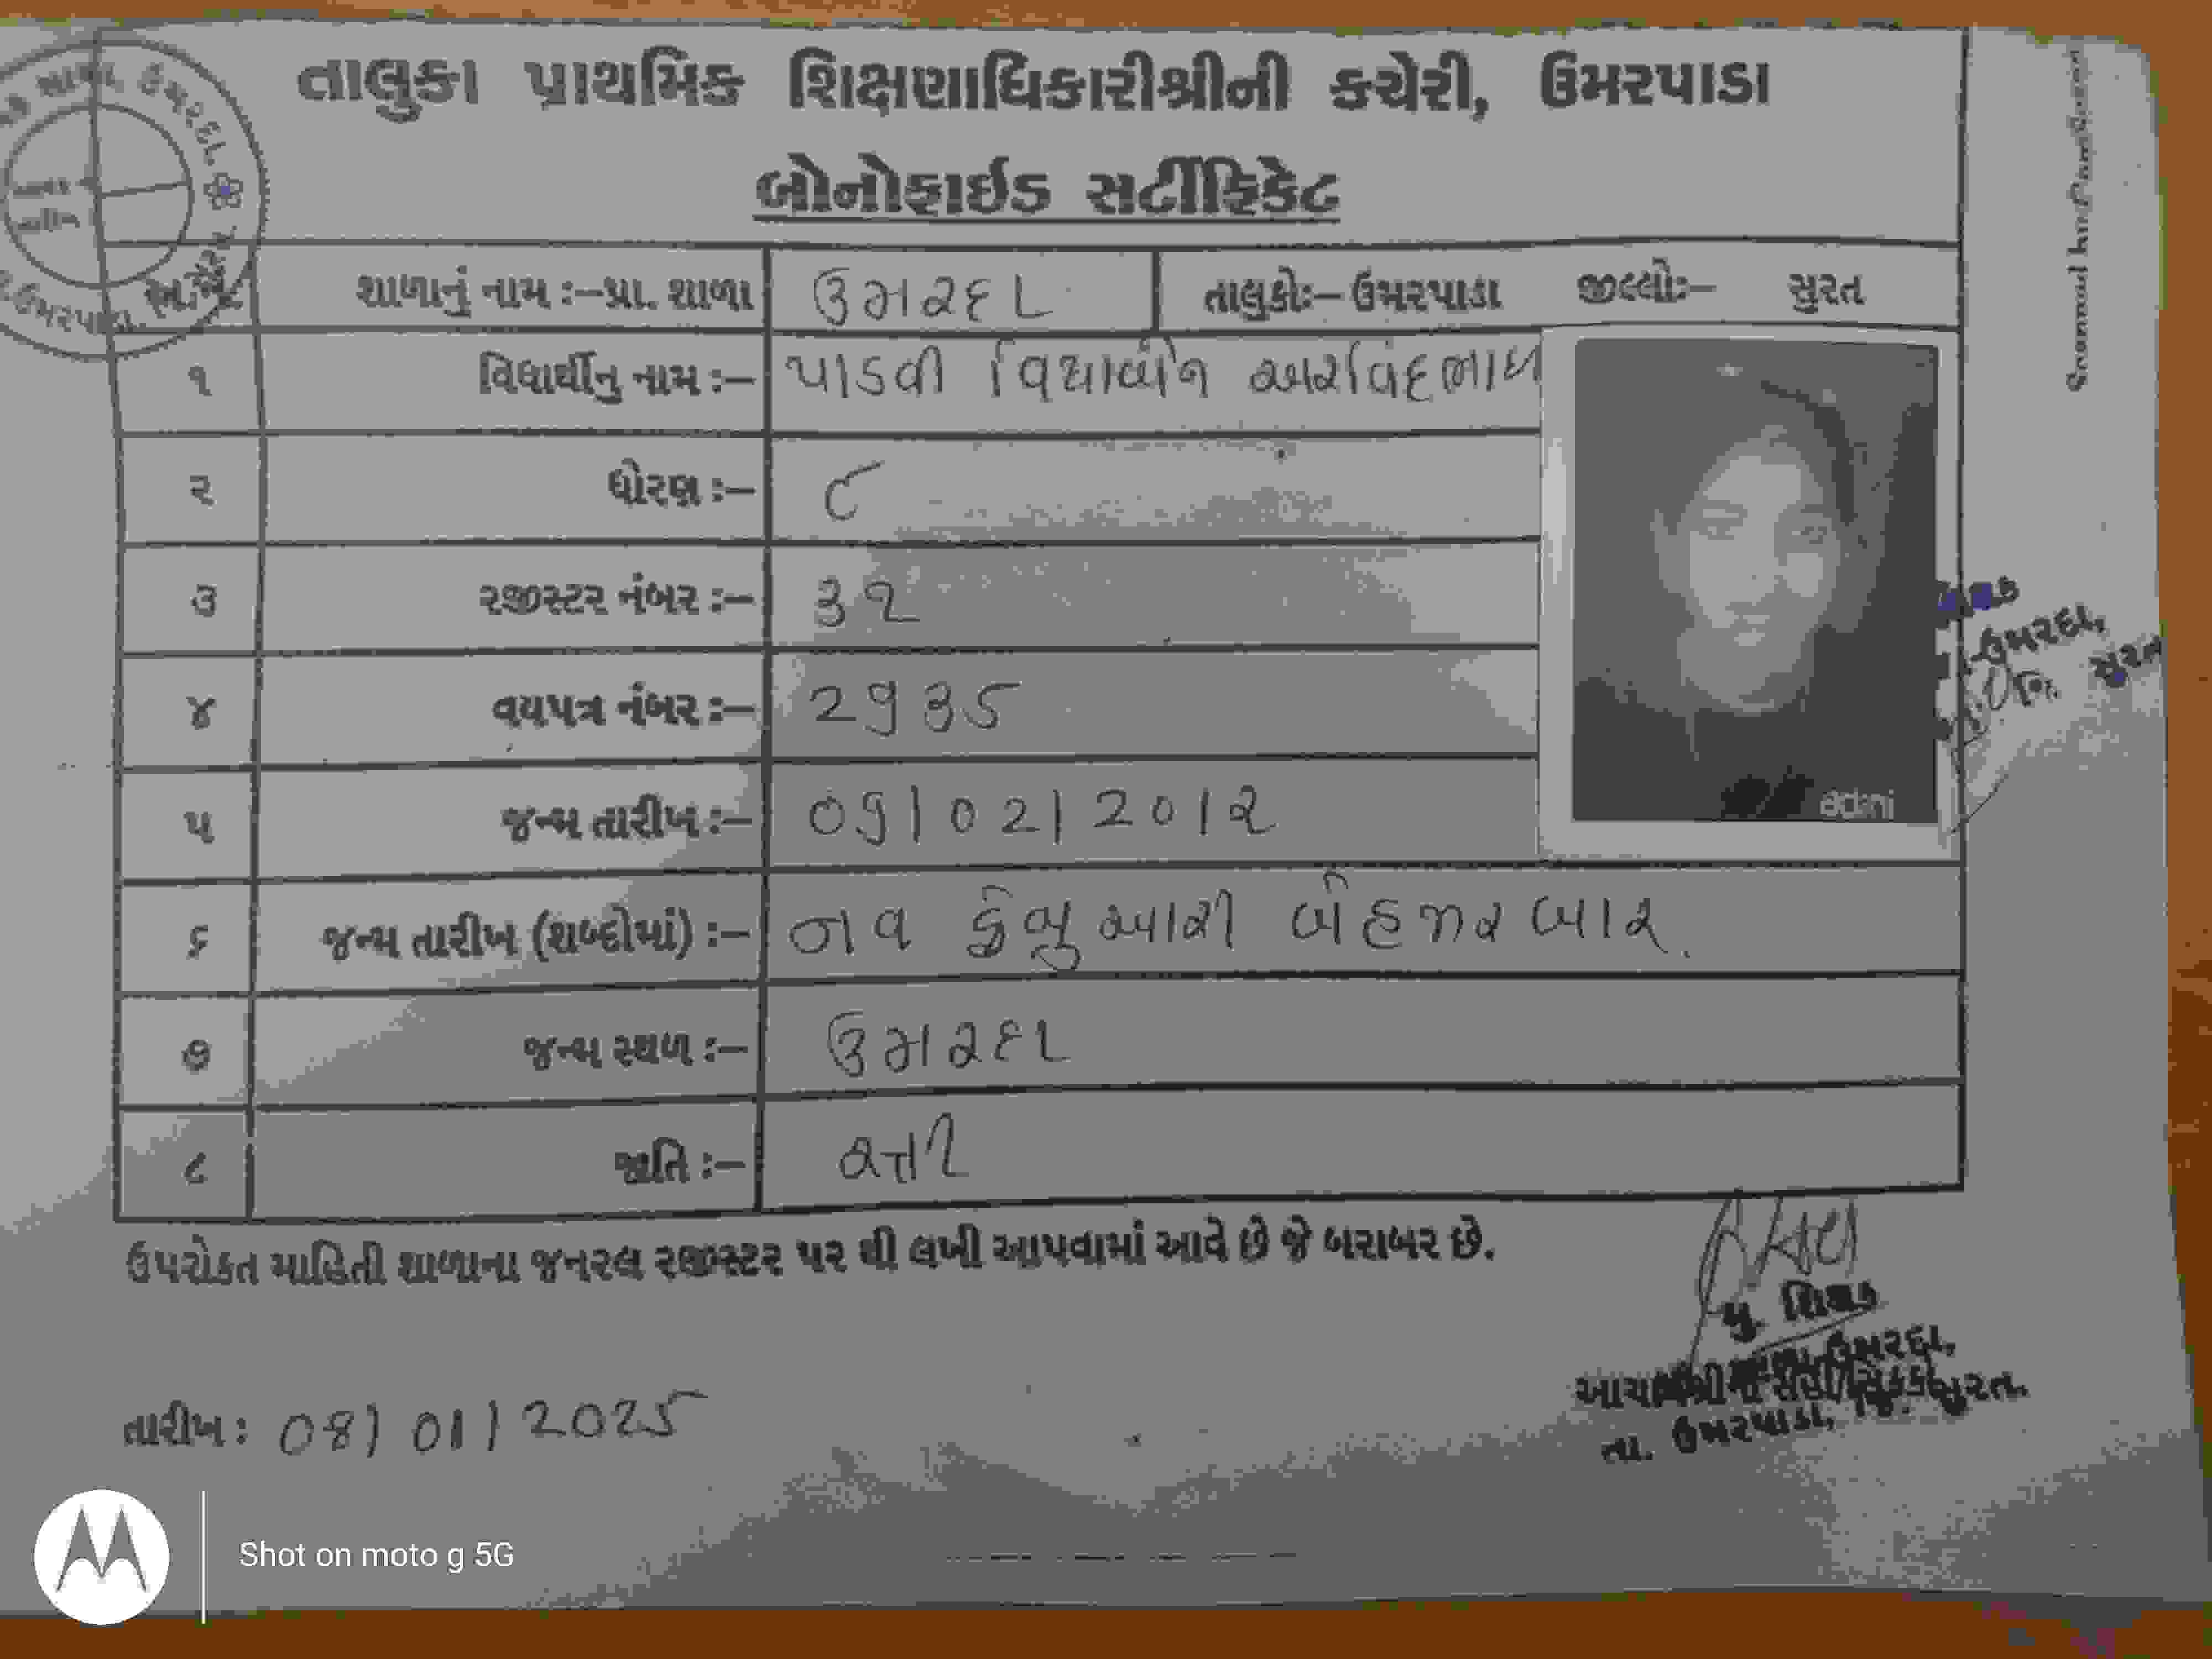 તાલુકા પ્રાથમિક શિક્ષણાધિકારીશ્રીની કચેરી, ઉમરપાડા
બોનોફાઈડ સર્ટીફિકેટ
શાળાનું નામ :-પ્રા. શાળા ઉમરદા તાલુકોઃ- ઉમરપાડા જીલ્લોઃ- સુરત
૧ વિધાર્થીનુ નામ :- પાડવી અરવિંદભાઈ
૨ ધોરણ :- ૮
૩ રજીસ્ટર નંબર :- ૩૨
૪ વયપત્ર નંબર :- 2935
૫ જન્મ તારીખ :- 09/02/2012
૬ જન્મ તારીખ (શબ્દોમાં) :- નવ ફેબ્રુઆરી બેહજાર બાર.
૭ જન્મ સ્થળ :- ઉમરદા
૮ જાતિ :-
ઉપરોક્ત માહિતી શાળાના જનરલ રજીસ્ટર પર થી લખી આપવામાં આવે છે જે બરાબર છે.
મુ. શિક્ષક
તા. ઉમરપાડા, જિ. સુરત.
તારીખ : 08/01/2025
Shot on moto g 5G